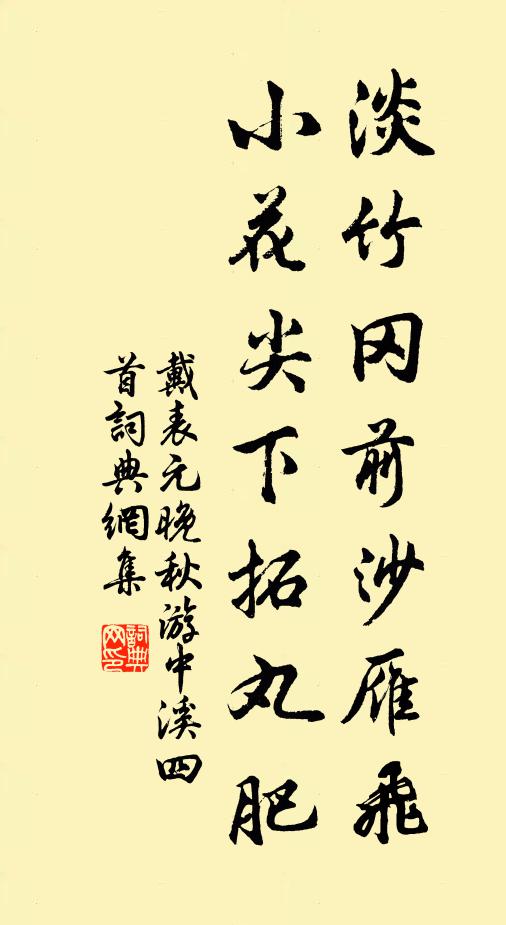 淡竹冈前沙雁飛
小花尖下拓丸肥
戴表元晚秋游中溪四
首詞典網集
詞典网印